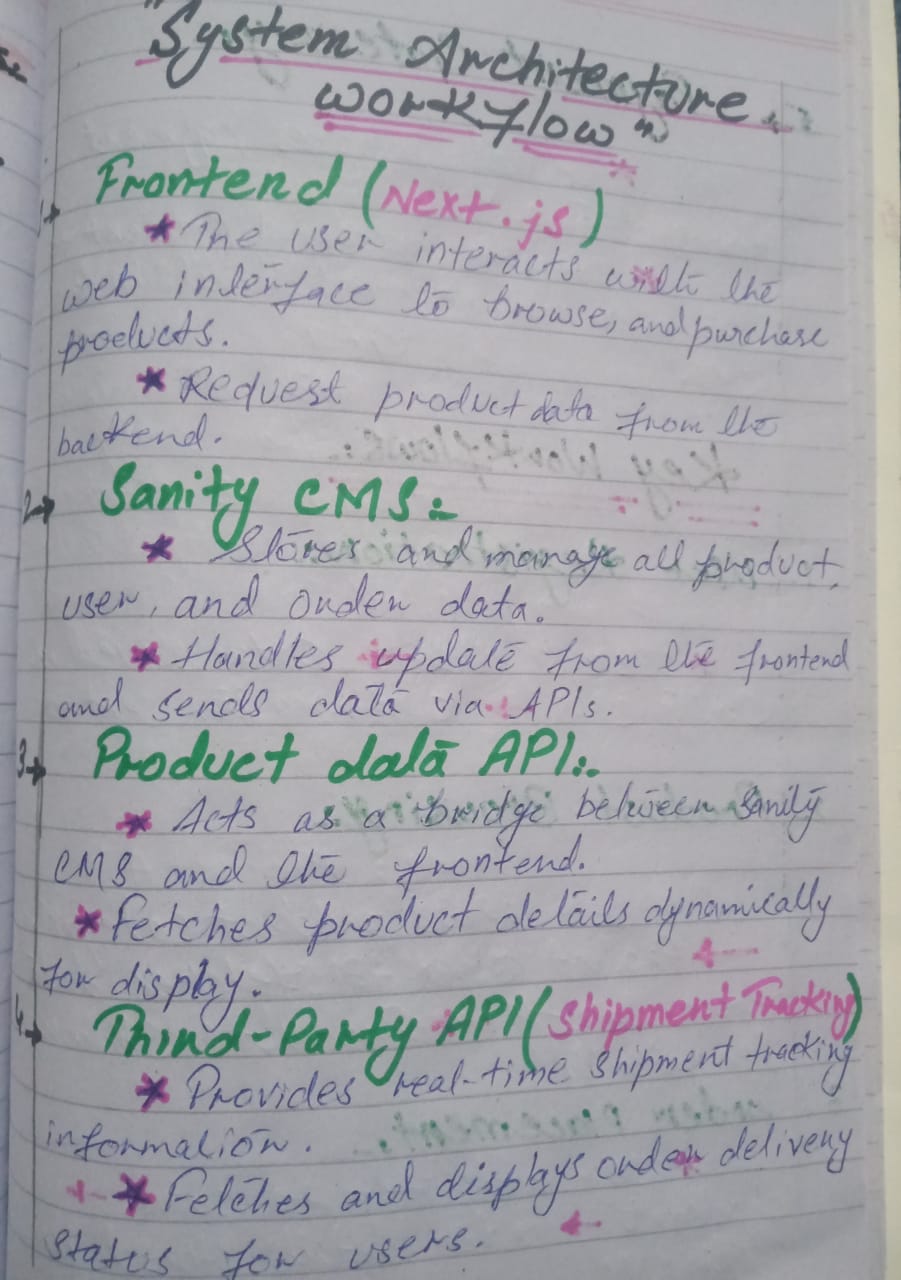 "System Architecture
workflow"
1→ Frontend (Next.js)
* The user interacts with the
web interface to browse, and purchase
products.
* Request product data from the
backend.
2→ Sanity CMS:-
* Stores and manage all product,
user, and order data.
* Handles update from the frontend
and sends data via APIs.
3→ Product data API:-
* Acts as a bridge between Sanity
CMS and the frontend.
* Fetches product details dynamically
for display.
4→ Third-Party API (Shipment Tracking)
* Provides real-time shipment tracking
information.
* Fetches and displays order delivery
status for users.